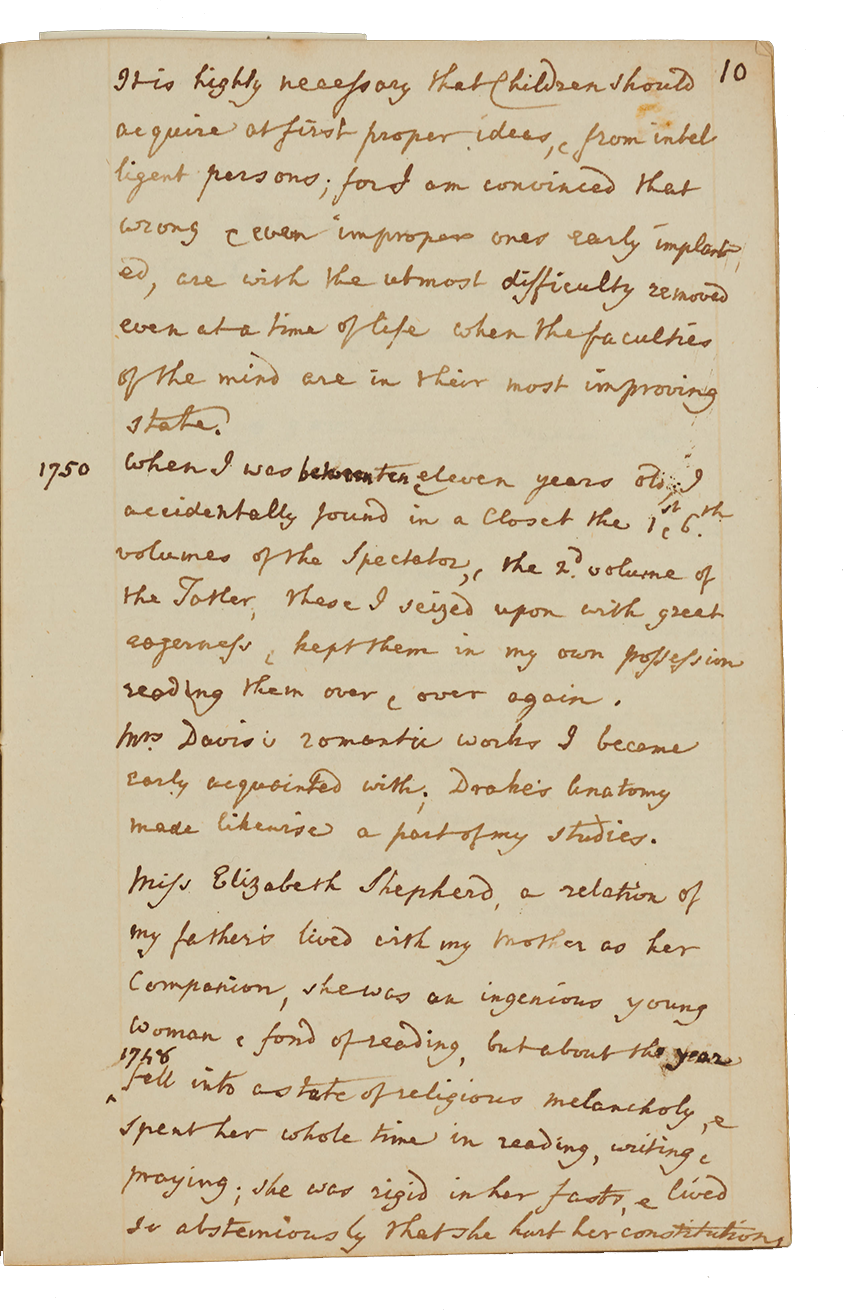 10
It is highly necessary that Children should
acquire at first proper ideas, & from intel
ligent persons; for I am convinced that
wrong & even improper ones early implant,
ed, are with the utmost difficulty removed
even at a time of life when the faculties
of the mind are in their most improving
state.
1750 When I was between ten & eleven years old, I
accidentally found in a Closet the 1st & 6.th
volumes of the Spectator, & the 2d. volume of
the Tatler, these I seized upon with great
eagerness & kept them in my own possession
reading them over & over again.
Mrs Davis's romantic works I became
early acquainted with; Drake's Anatomy
made likewise a part of my studies.
Miss Elizabeth Shepherd, a relation of
my father's lived with my Mother as her
Companion, she was an ingenious young
woman & fond of reading, but about the year
1748
^ fell into a state of religious melancholy, &
spent her whole time in reading, writing &
praying; she was rigid in her fasts, & lived
so abstemiously that she hurt her constitution,